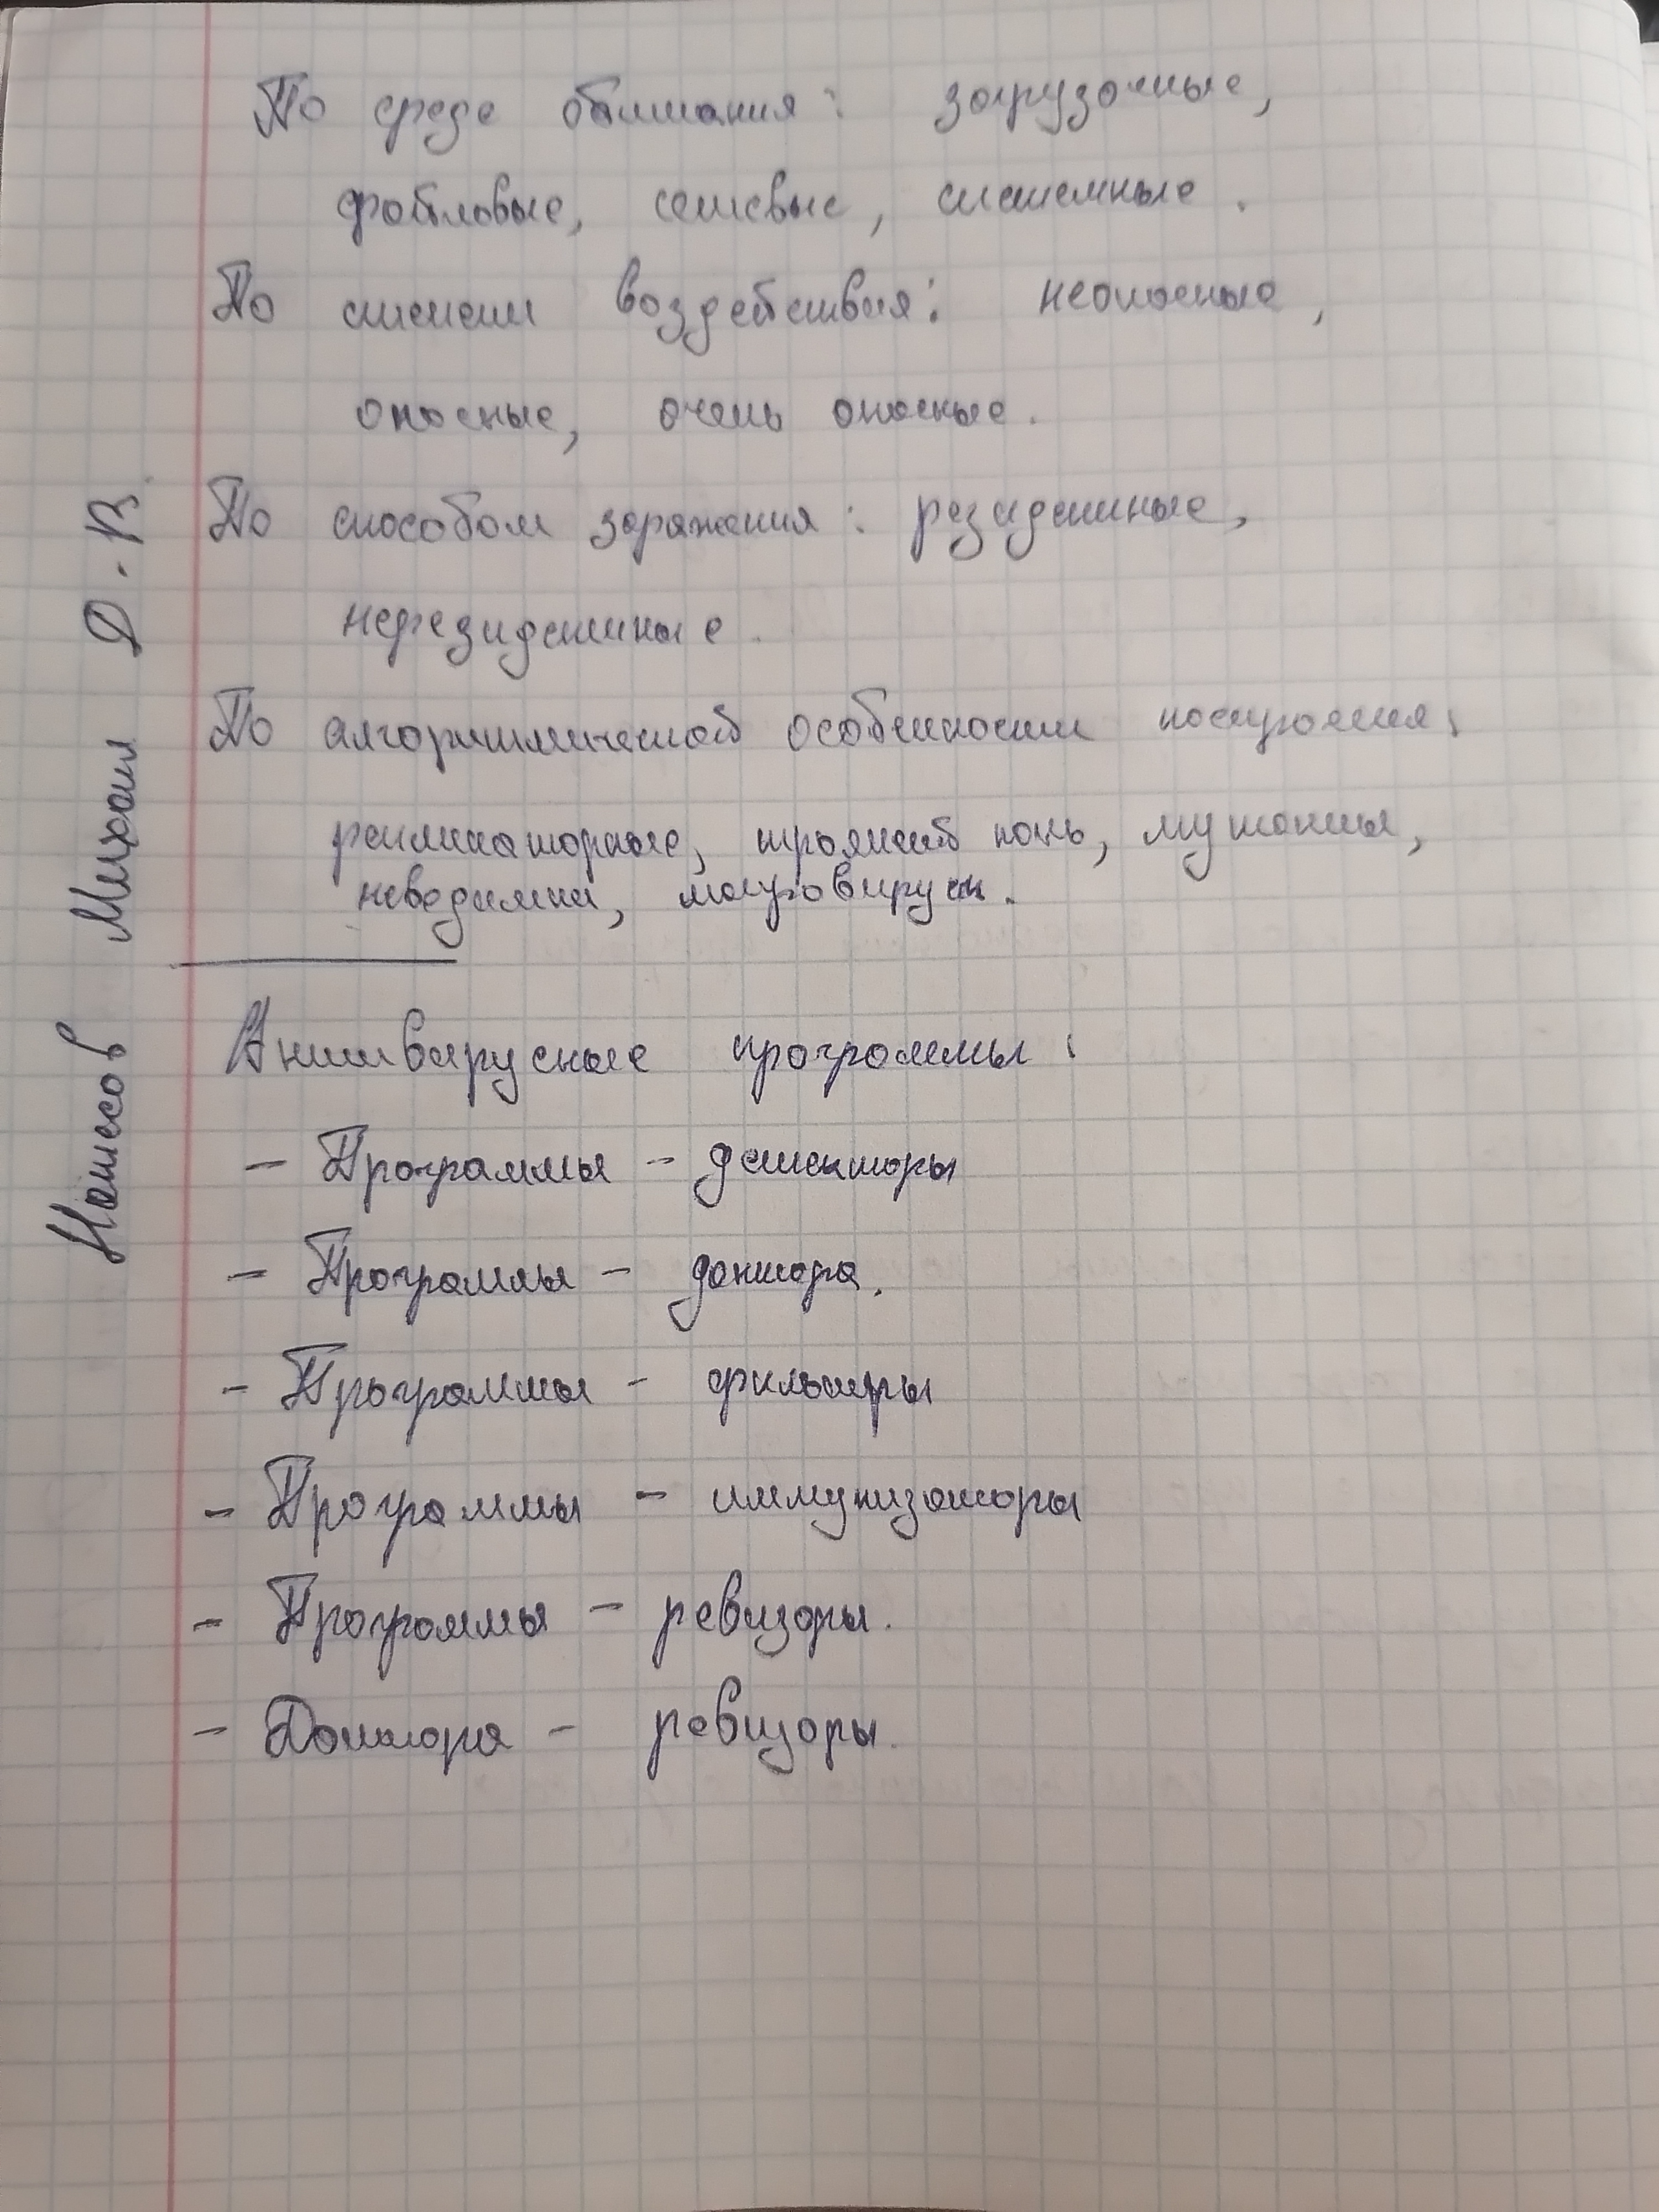 По среде обитания: загрузочные,
файловые, сетевые, системные.
По степени воздействия: неопасные,
опасные, очень опасные.
По способом заражения: резидентные,
нерезидентные.
По алгоритмической особенности построения:
репликаторные, троянский конь, мутанты,
невидимки, макровирусы.
Антивирусные программы:
- Программы - детекторы
- Программы - доктора.
- Программы - фильтры
- Программы - иммунизаторы
- Программы - ревизоры.
- Доктора - ревизоры.
Михаил Д.В.